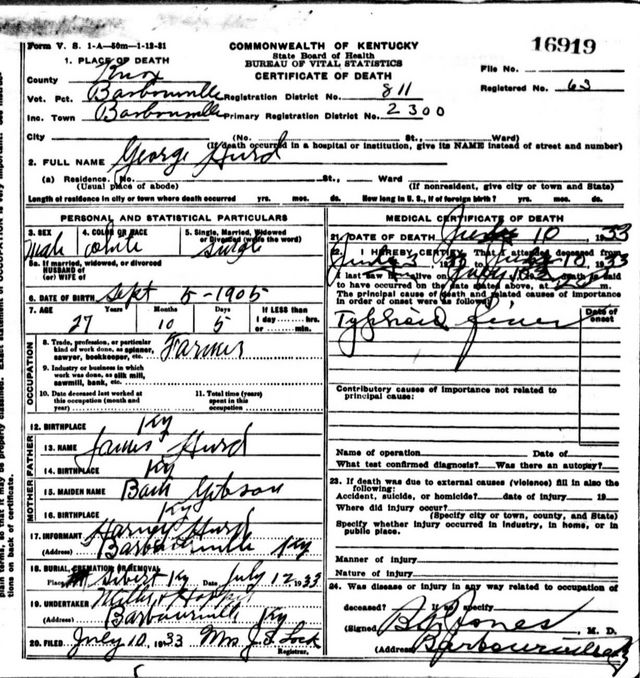 Form V. S. 1-A—50m—1-12-31
COMMONWEALTH OF KENTUCKY
State Board of Health
BUREAU OF VITAL STATISTICS
CERTIFICATE OF DEATH
16919
File No.
Registered No. 63
1. PLACE OF DEATH
County Knox
Vot. Pct. Barbourville Registration District No. 811
Inc. Town Barbourville Primary Registration District No. 2300
City (No. St., Ward)
(If death occurred in a hospital or institution, give its NAME instead of street and number)
2. FULL NAME George Hurd
(a) Residence. No. St., Ward
(Usual place of abode) (If nonresident, give city or town and State)
Length of residence in city or town where death occurred yrs. mos. ds. How long in U. S., if of foreign birth? yrs. mos. ds.
PERSONAL AND STATISTICAL PARTICULARS
3. SEX 4. COLOR OR RACE 5. Single, Married, Widowed or Divorced (write the word)
Male White Single
5a. If married, widowed, or divorced
HUSBAND of
(or) WIFE of
6. DATE OF BIRTH Sept 5-1905
7. AGE Years Months Days If LESS than
1 day hrs.
or min.
27 10 5
OCCUPATION
8. Trade, profession, or particular kind of work done, as spinner, sawyer, bookkeeper, etc. Farmer
9. Industry or business in which work was done, as silk mill, sawmill, bank, etc.
10. Date deceased last worked at this occupation (month and year)
11. Total time (years) spent in this occupation
FATHER
12. BIRTHPLACE Ky
13. NAME James Hurd
14. BIRTHPLACE Ky
MOTHER
15. MAIDEN NAME Gibson
16. BIRTHPLACE Ky
17. INFORMANT Hurd
(Address) Barbourville Ky
18. BURIAL, CREMATION OR REMOVAL
Place Ky Date July 12 1933
19. UNDERTAKER
(Address) Barbourville Ky
20. FILED July 10, 1933 Mrs J. S. Lock
Registrar.
MEDICAL CERTIFICATE OF DEATH
21. DATE OF DEATH 10, 1933
22. I HEREBY CERTIFY, That I attended deceased from
10, 1933
I last saw h alive on death is said
to have occurred on the date stated above, at m.
The principal cause of death and related causes of importance
in order of onset were as follows:
Date of onset
Typhoid fever
Contributory causes of importance not related to
principal cause:
Name of operation Date of
What test confirmed diagnosis? Was there an autopsy?
23. If death was due to external causes (violence) fill in also the
following:
Accident, suicide, or homicide? date of injury 19
Where did injury occur?
(Specify city or town, county, and State)
Specify whether injury occurred in industry, in home, or in
public place.
Manner of injury
Nature of injury
24. Was disease or injury in any way related to occupation of
deceased? If so specify
(Signed) Jones, M. D.
(Address) Barbourville Ky